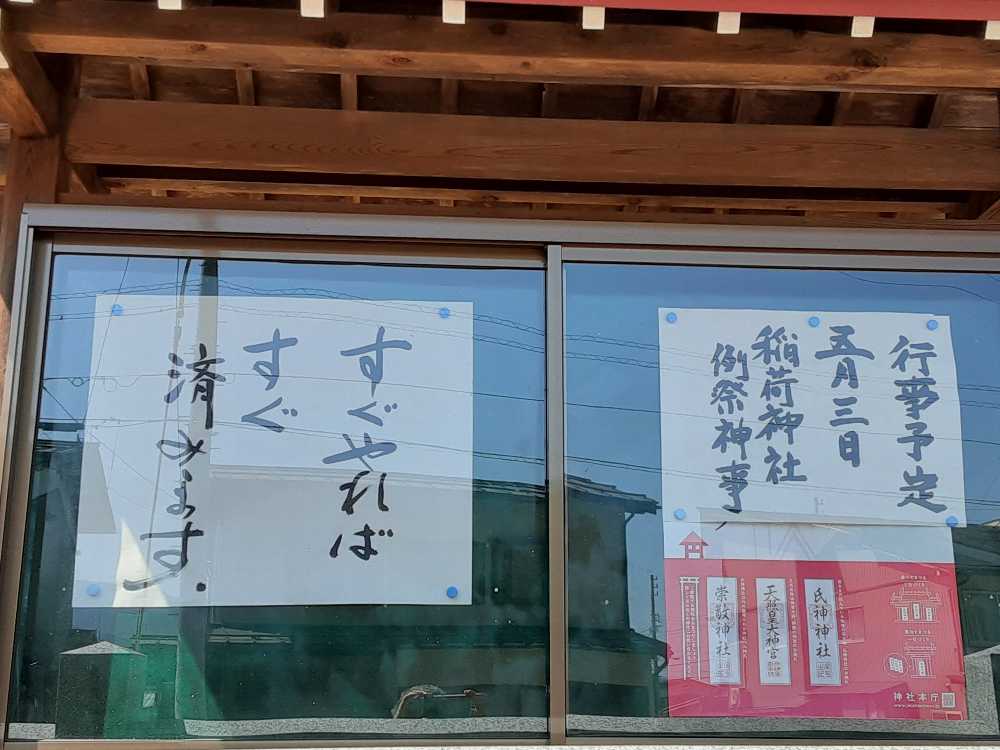 すぐやれば
すぐ
済めます.
行事予定
五月三日
稲荷神社
例祭神事
氏神神社
天照皇大神宮
崇敬神社
神社本庁